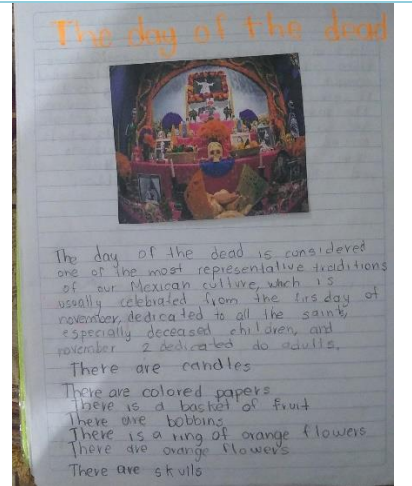 The day of the dead
The day of the dead is considered
one of the most representative traditions
of our Mexican culture, which is
usually celebrated from the firs day of
november, dedicated to all the saint,
especially deceased children, and
november 2 dedicated do adults.
There are candles
There are colored papers
There is a basket of fruit
There are bobbins
There is a ring of orange flowers
There are orange flowers
There are skulls